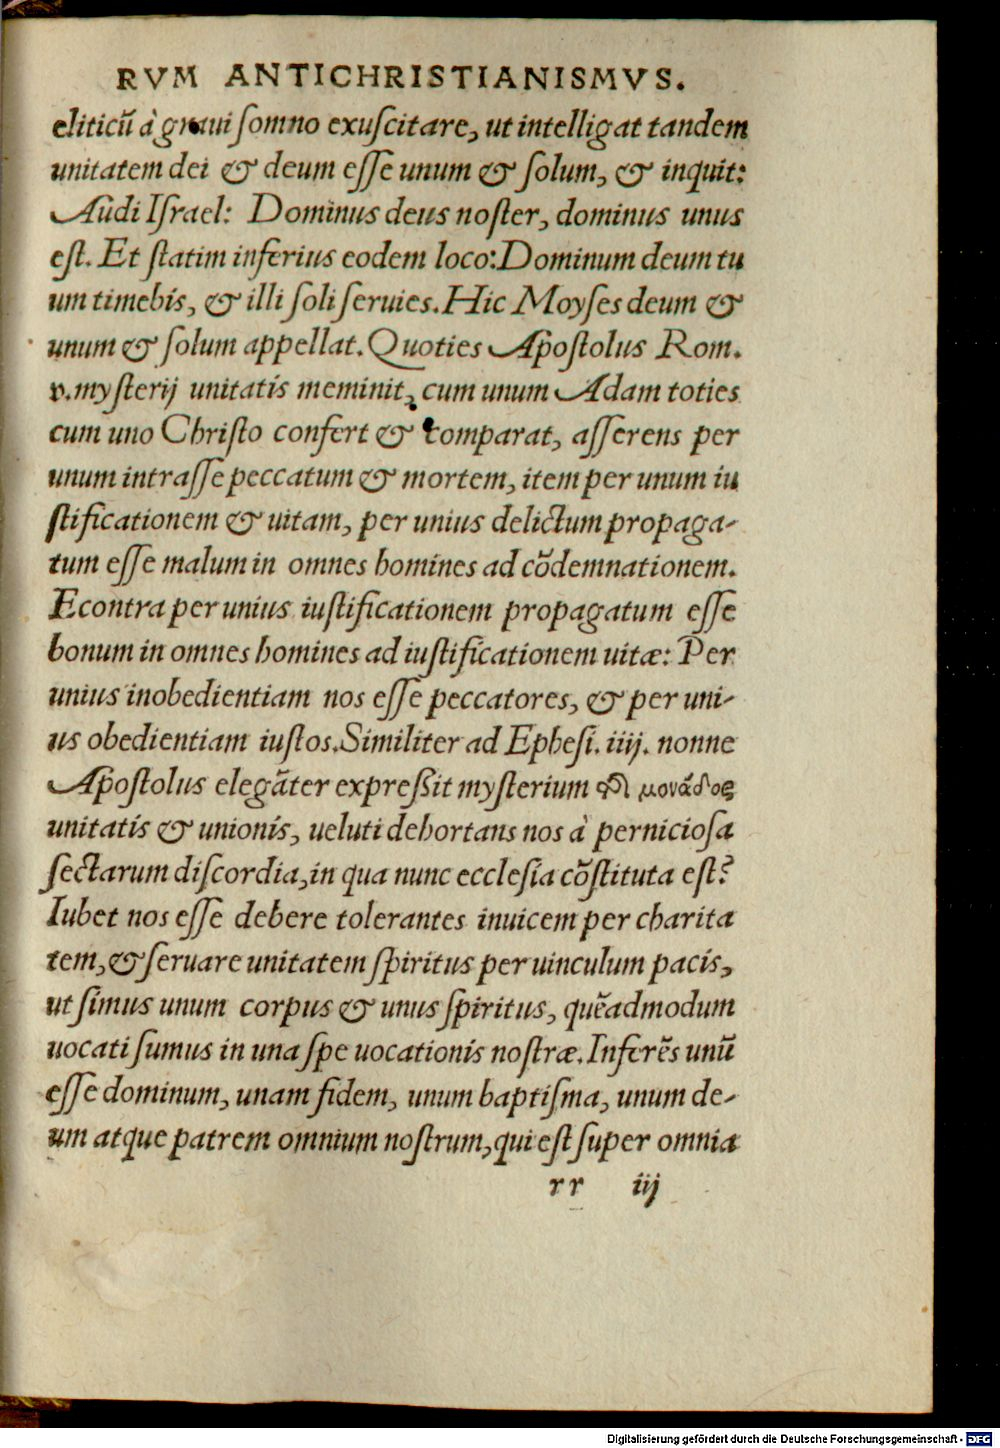 RVM ANTICHRISTIANISMVS.
eliticũ à graui ſomno exuſcitare, ut intelligat tandem
unitatem dei & deum eſſe unum & ſolum, & inquit:
Audi Iſrael: Dominus deus noſter, dominus unus
eſt. Et ſtatim inferius eodem loco: Dominum deum tu
um timebis, & illi ſoli ſeruies. Hic Moyſes deum &
unum & ſolum appellat. Quoties Apoſtolus Rom.
v. myſterij unitatis meminit, cum unum Adam toties
cum uno Chriſto confert & comparat, aſſerens per
unum intraſſe peccatum & mortem, item per unum iu
ſtificationem & uitam, per unius delictum propaga-
tum eſſe malum in omnes homines ad cõdemnationem.
Econtra per unius iuſtificationem propagatum eſſe
bonum in omnes homines ad iuſtificationem uitæ: Per
unius inobedientiam nos eſſe peccatores, & per uni-
us obedientiam iuſtos. Similiter ad Epheſi. iiij. nonne
Apoſtolus elegãter expreſsit myſterium μονάδος
unitatis & unionis, ueluti dehortans nos à pernicioſa
ſectarum diſcordia, in qua nunc eccleſia cõſtituta eſt?
Iubet nos eſſe debere tolerantes inuicem per charita
tem, & ſeruare unitatem ſpiritus per uinculum pacis,
ut ſimus unum corpus & unus ſpiritus, quẽadmodum
uocati ſumus in una ſpe uocationis noſtræ. Inferẽs unũ
eſſe dominum, unam fidem, unum baptiſma, unum de-
um atque patrem omnium noſtrum, qui eſt ſuper omnia
rr iij
Digitalisierung gefördert durch die Deutsche Forschungsgemeinschaft - DFG